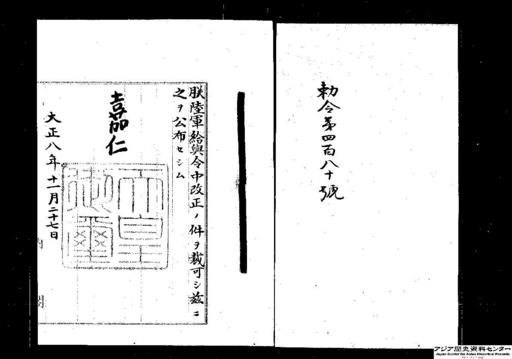 勅令第四百八十號
朕陸軍給與令中改正ノ件ヲ裁可シ茲ニ
之ヲ公布セシム
嘉仁
天皇
御璽
大正八年十一月二十七日
内閣
アジア歴史資料センター
Japan Center for Asian Historical Records